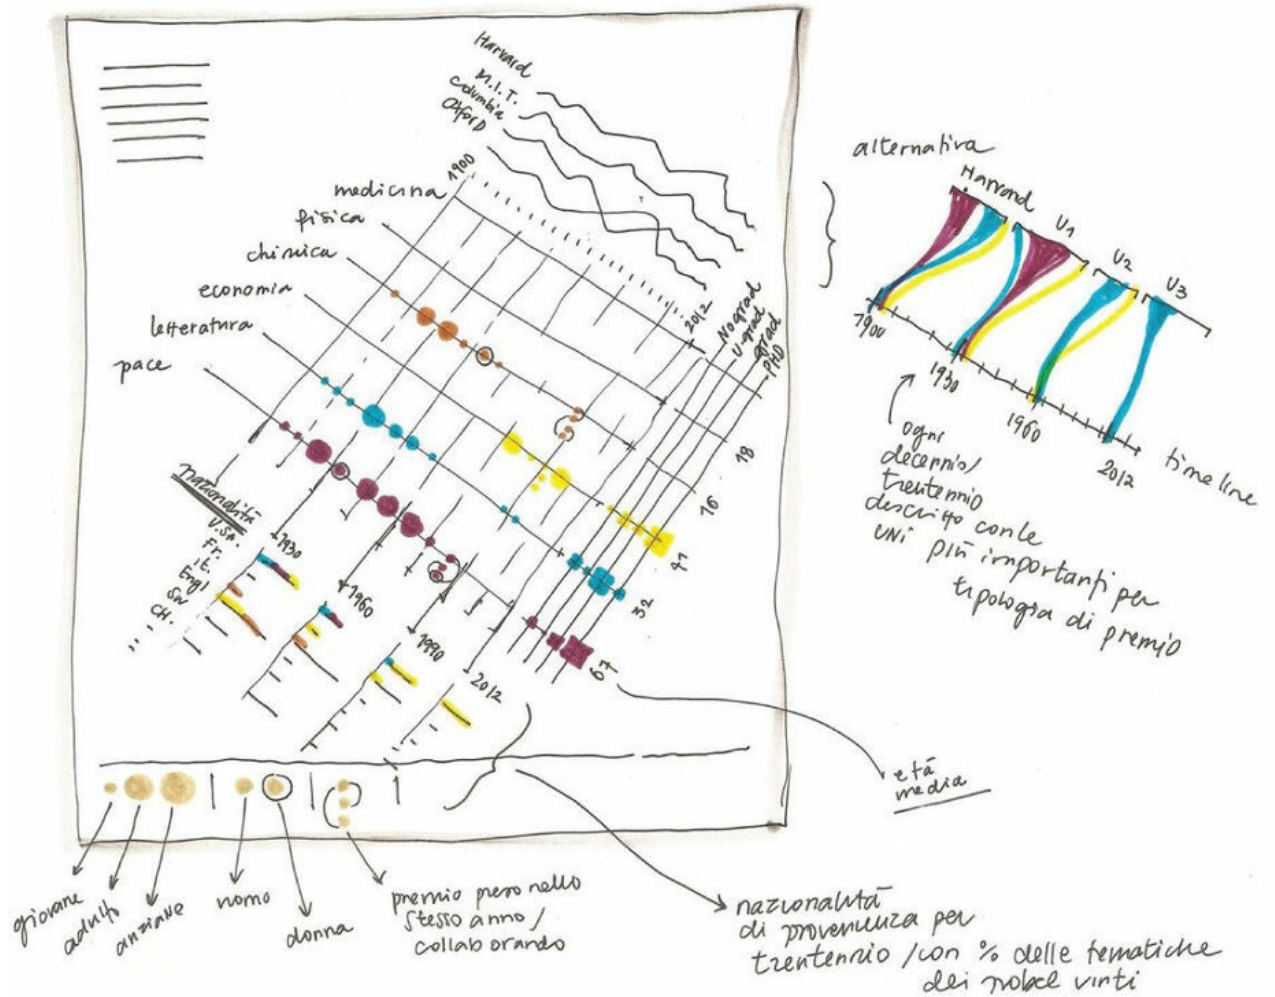 Harvard
M.I.T.
Columbia
Oxford
1900
medicina
fisica
chimica
economia
letteratura
pace
2012
No grad
U-grad
grad
PHD
18
16
41
32
67
nazionalità
U.SA.
Fr.
it.
Engl
Sw
CH.
1930
1960
1990
2012
alternativa
Harvard
U1
U2
U3
1900
1930
1960
2012
timeline
ogni
decennio/
trentennio
descritto con le
UNI più importanti per
tipologia di premio
età
media
giovane
adulto
anziane
uomo
donna
premio preso nello
stesso anno/
collaborando
nazionalità
di provenienza per
trentennio / con % delle tematiche
dei nobel vinti